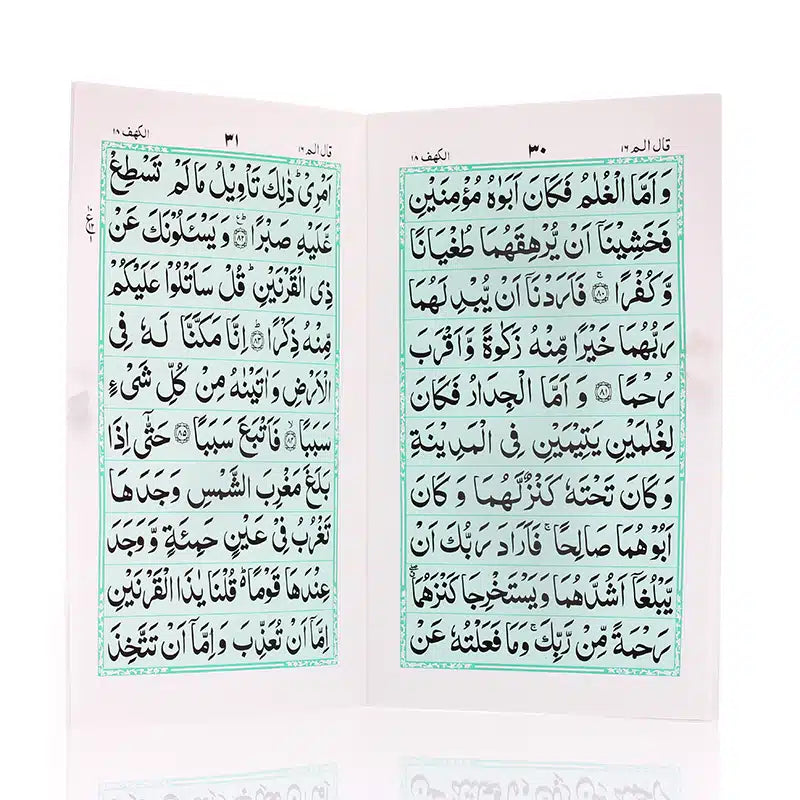 قال الم ١٦
٣٠
الكهف ١٨
وَ اَمَّا الْغُلٰمُ فَكَانَ اَبَوٰهُ مُؤْمِنَيْنِ
فَخَشِيْنَاۤ اَنْ يُّرْهِقَهُمَا طُغْيَانًا
وَّ كُفْرًا ۚ ﴿٨٠﴾ فَاَرَدْنَاۤ اَنْ يُّبْدِلَهُمَا
رَبُّهُمَا خَيْرًا مِّنْهُ زَكٰوةً وَّ اَقْرَبَ
رُحْمًا ﴿٨١﴾ وَ اَمَّا الْجِدَارُ فَكَانَ
لِغُلٰمَيْنِ يَتِيْمَيْنِ فِى الْمَدِيْنَةِ
وَ كَانَ تَحْتَهٗ كَنْزٌ لَّهُمَا وَ كَانَ
اَبُوْهُمَا صَالِحًا ۚ فَاَرَادَ رَبُّكَ اَنْ
يَّبْلُغَاۤ اَشُدَّهُمَا وَ يَسْتَخْرِجَا كَنْزَهُمَا
رَحْمَةً مِّنْ رَّبِّكَ ۚ وَمَا فَعَلْتُهٗ عَنْ
قال الم ١٦
٣١
الكهف ١٨
اَمْرِىْ ؕ ذٰلِكَ تَاْوِيْلُ مَا لَمْ تَسْطِعْ
عَّلَيْهِ صَبْرًا ﴿٨٢﴾ وَ يَسْـَٔلُوْنَكَ عَنْ
ذِى الْقَرْنَيْنِ ؕ قُلْ سَاَتْلُوْا عَلَيْكُمْ
مِّنْهُ ذِكْرًا ؕ ﴿٨٣﴾ اِنَّا مَكَّنَّا لَهٗ فِى
الْاَرْضِ وَ اٰتَيْنٰهُ مِنْ كُلِّ شَىْءٍ
سَبَبًا ۙ ﴿٨٤﴾ فَاَتْبَعَ سَبَبًا ﴿٨٥﴾ حَتّٰۤى اِذَا
بَلَغَ مَغْرِبَ الشَّمْسِ وَجَدَهَا
تَغْرُبُ فِىْ عَيْنٍ حَمِئَةٍ وَّ وَجَدَ
عِنْدَهَا قَوْمًا ؕ قُلْنَا يٰذَا الْقَرْنَيْنِ
اِمَّاۤ اَنْ تُعَذِّبَ وَ اِمَّاۤ اَنْ تَتَّخِذَ